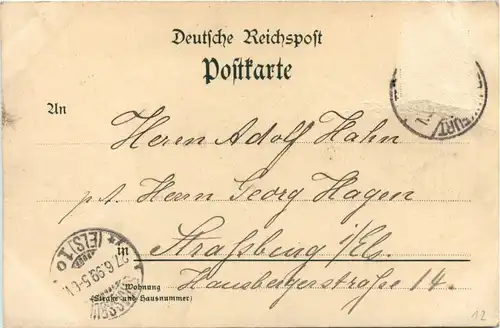 Deutsche Reichspost
Postkarte
An
Herrn Adolf Hahn
p. A. Herrn Georg Hagen
in Straßburg i/Els.
Wohnung
(Straße und Hausnummer)
Hausbergerstraße 14.
FURT
(ELS) 1
27.6.99.5-6
12